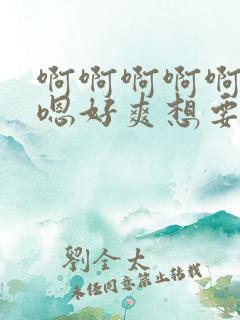 啊啊啊啊啊
嗯好爽想要
劉全太
未经同意禁止转载